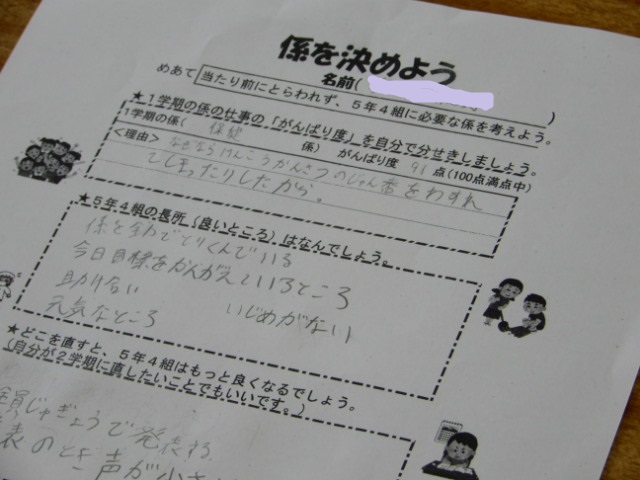 係を決めよう
名前( )
めあて 当たり前にとらわれず、5年4組に必要な係を考えよう。
★1学期の係の仕事の「がんばり度」を自分で分せきしましょう。
1学期の係( 保健 係) がんばり度 91 点(100点満点中)
<理由> なぜならけんこうかんさつのじゅん番をわすれ
てしまったりしたから。
★5年4組の長所(良いところ)はなんでしょう。
係を全力でとりくんでいる
今日目標をかんがえているところ
助け合い いじめがない
元気なところ
★どこを直すと、5年4組はもっと良くなるでしょう。
(自分が2学期に直したいことでもいいです。)
全員じゅぎょうで発表する
発表のとき声が小さ